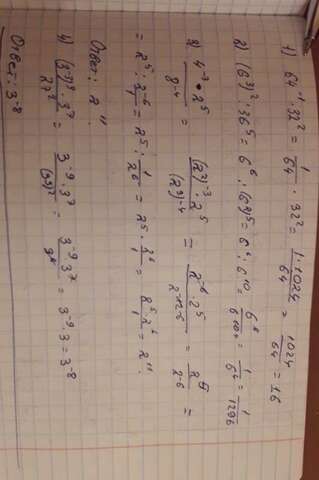 1) 64⁻¹·32² = 1/64 · 32² = 1·1024/64 = 1024/64 = 16
2) (6³)² : 36⁵ = 6⁶ : (6²)⁵ = 6⁶ : 6¹⁰ = 6⁶/6¹⁰ = 1/6⁴ = 1/1296
3) 4⁻³·2⁵/8⁻⁴ = (2²)⁻³·2⁵/(2³)⁻⁴ = 2⁻⁶·2⁵/2⁻¹²⁻⁶ = 2⁵/2⁻⁶ =
= 2⁵ : 2⁻⁶ = 2⁵ : 1/2⁶ = 2⁵ · 2⁶/1 = 2⁵·2⁶/1 = 2¹¹.
Ответ: 2¹¹
4) (3⁻³)³·3⁷/27² = 3⁻⁹·3⁷/(3³)² = 3⁻⁹·3⁷/3⁶ = 3⁻⁹·3 = 3⁻⁸
Ответ: 3⁻⁸